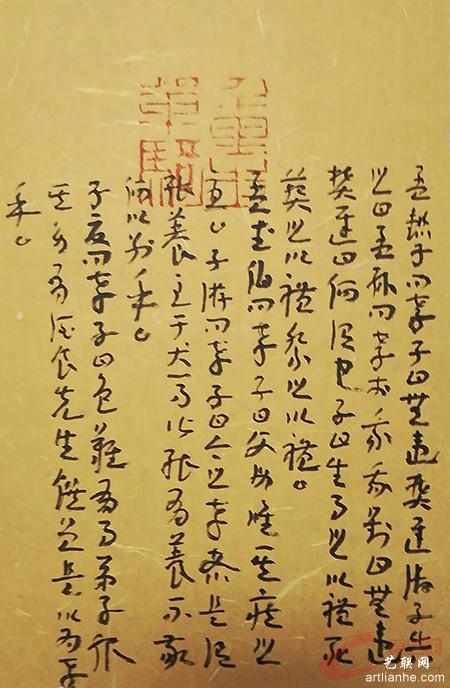 孟懿子問孝子曰無違樊遲御子告
之曰孟孫問孝於我我對曰無違
樊遲曰何謂也子曰生事之以禮死
葬之以禮祭之以禮。
孟武伯問孝子曰父母唯其疾之
憂。子游問孝子曰今之孝者是謂
能養至于犬馬皆能有養不敬
何以別乎。
子夏問孝子曰色難有事弟子服
其勞有酒食先生饌曾是以為孝
乎。
艺联网
artlianhe.com